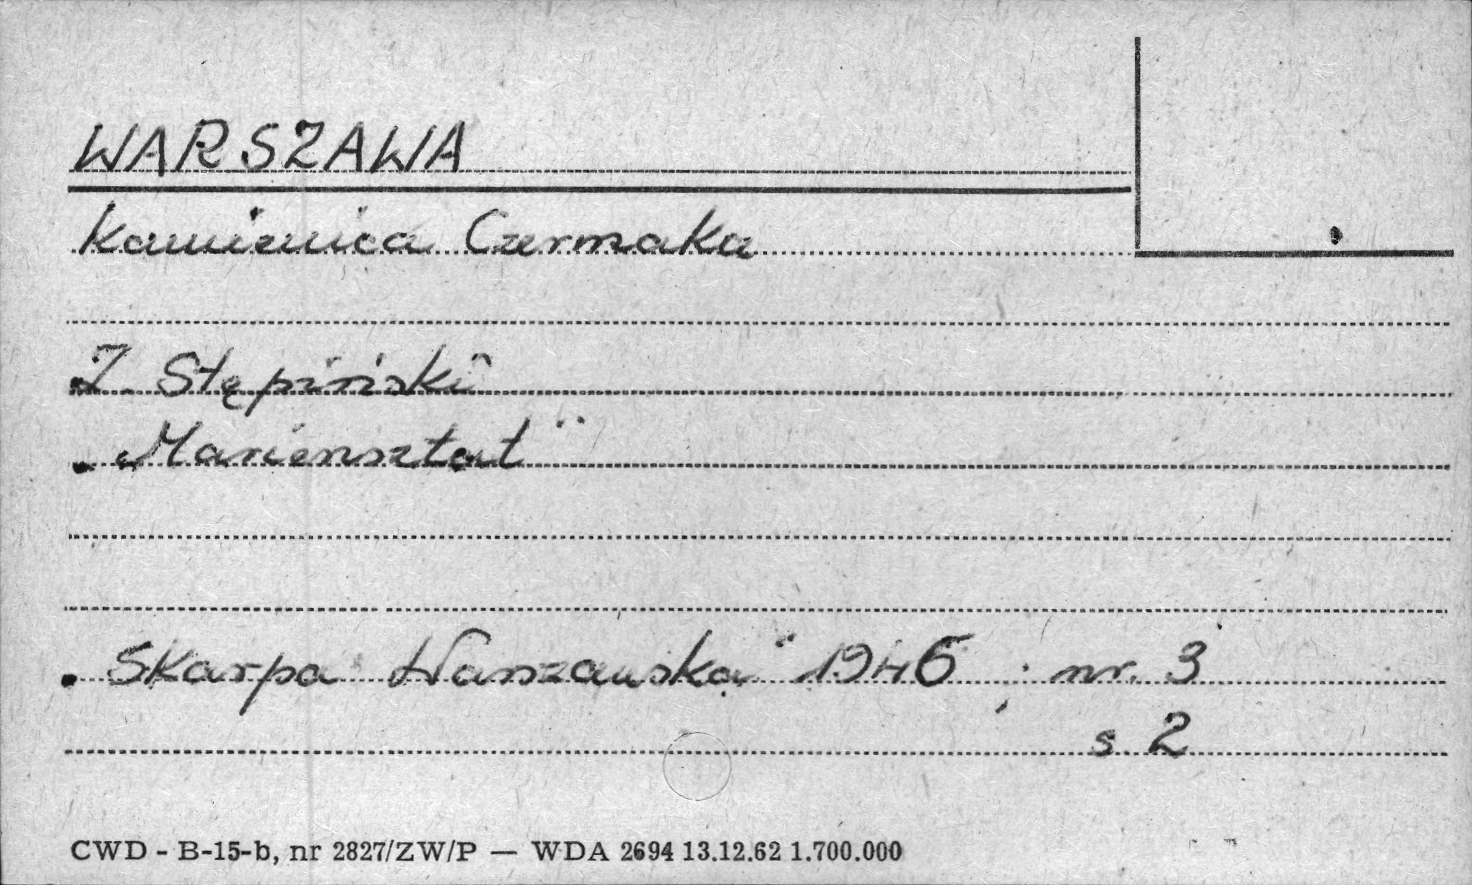 WARSZAWA
Kamienica Czermaka
Z. Stępiński
„Mariensztat"
„Skarpa Warszawska" 1946 nr. 3
s. 2
CWD - B-15-b, nr 2827/ZW/P — WDA 2694 13.12.62 1.700.000